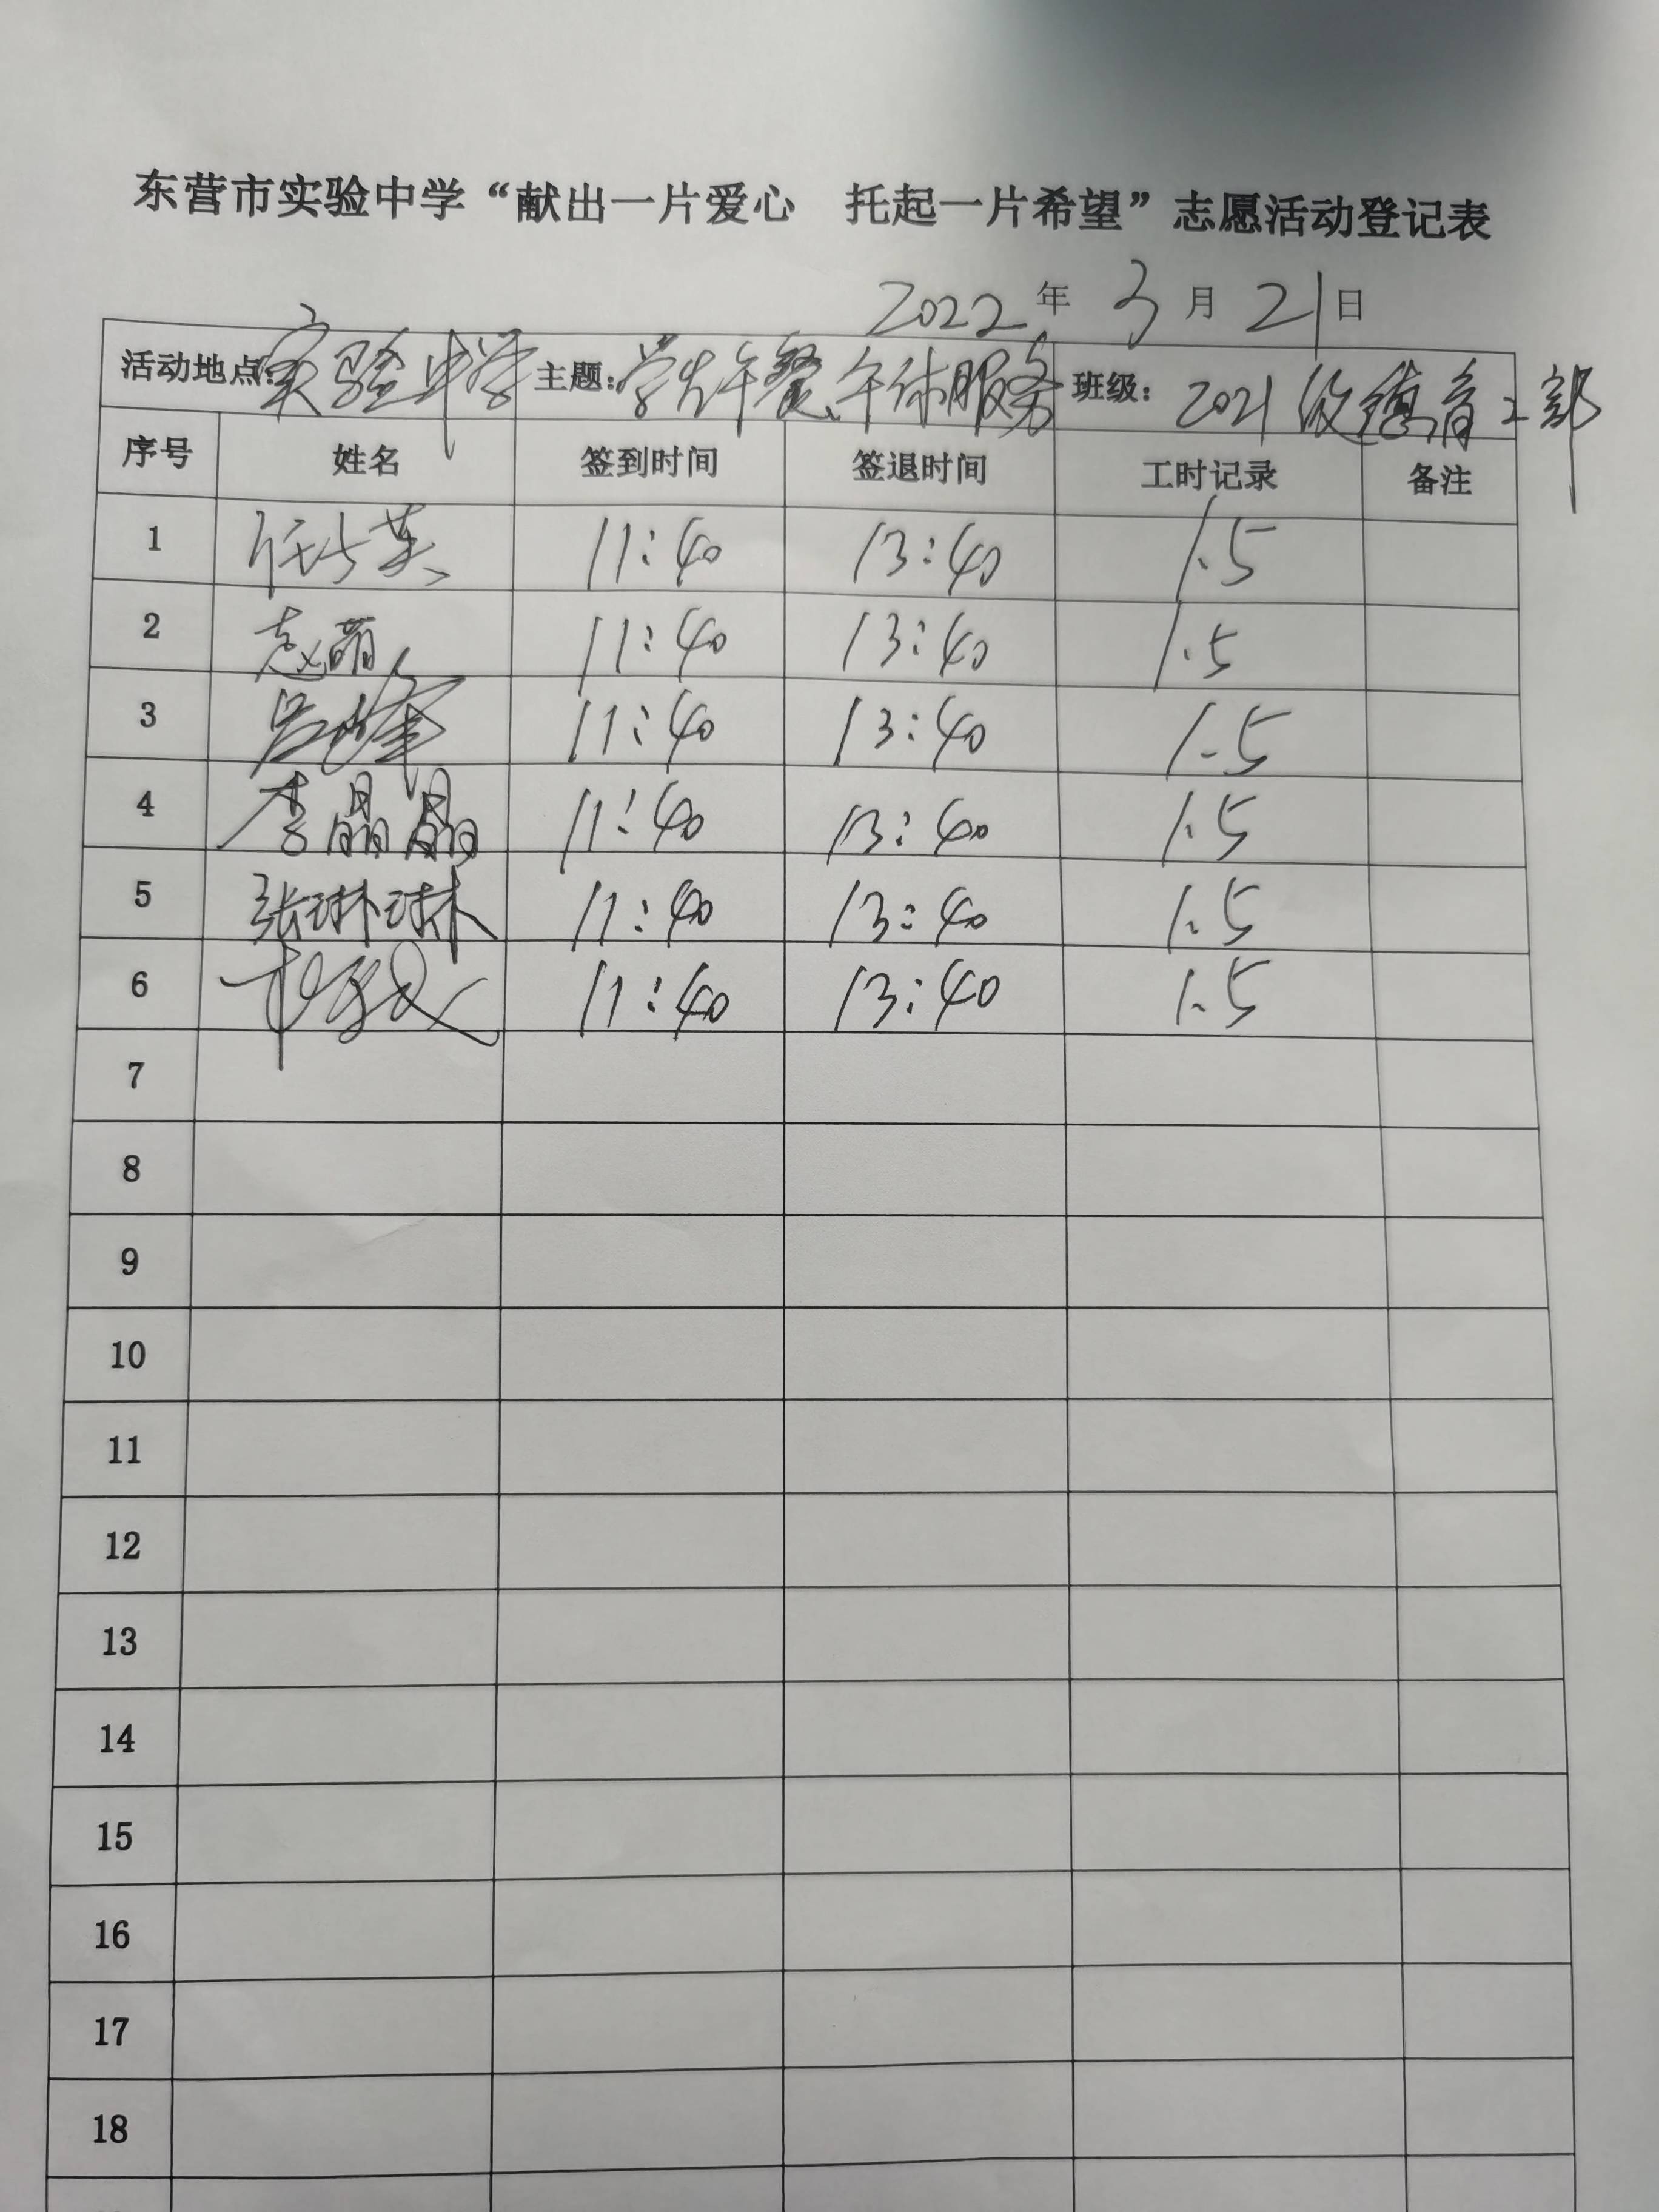 东营市实验中学“献出一片爱心 托起一片希望”志愿活动登记表
2022年3月21日
活动地点:实验中学 主题:学生午餐、午休服务 班级: 2021级德育二部
序号 姓名 签到时间 签退时间 工时记录 备注
1 11:40 13:40 1.5
2 赵萌 11:40 13:40 1.5
3 吕峰 11:40 13:40 1.5
4 李晶晶 11:40 13:40 1.5
5 张琳琳 11:40 13:40 1.5
6 11:40 13:40 1.5
7
8
9
10
11
12
13
14
15
16
17
18